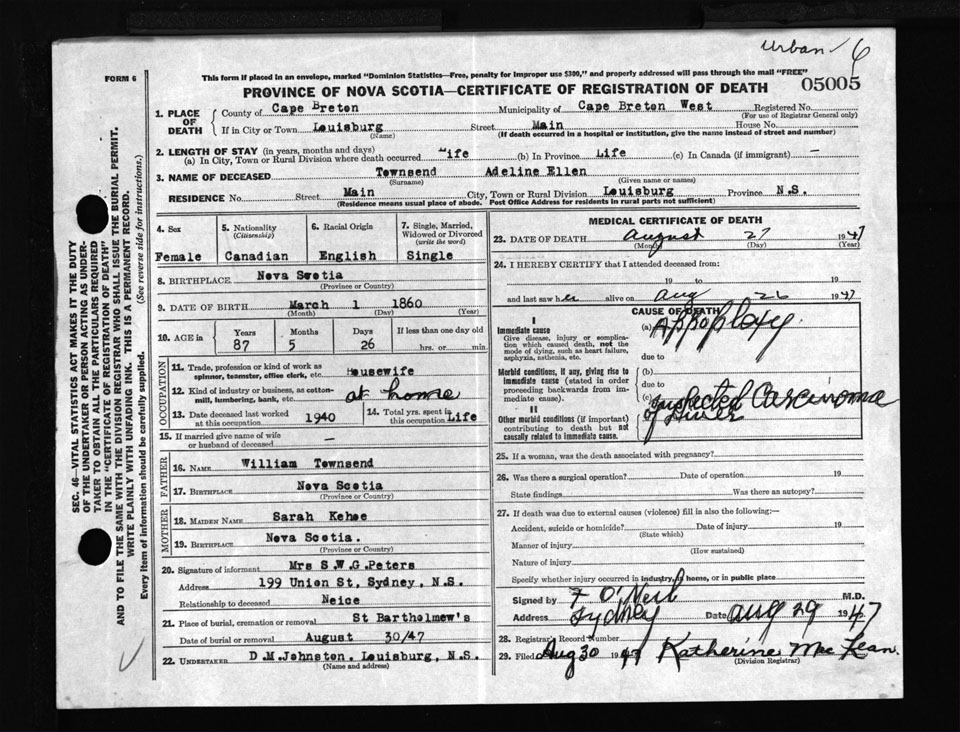 Urban 6
FORM 6
This form if placed in an envelope, marked "Dominion Statistics—Free, penalty for improper use $300," and properly addressed will pass through the mail "FREE"
PROVINCE OF NOVA SCOTIA—CERTIFICATE OF REGISTRATION OF DEATH
05005
SEC. 46—VITAL STATISTICS ACT MAKES IT THE DUTY
OF THE UNDERTAKER OR PERSON ACTING AS UNDER-
TAKER TO OBTAIN ALL THE PARTICULARS REQUIRED
IN THE "CERTIFICATE OF REGISTRATION OF DEATH"
AND TO FILE THE SAME WITH THE DIVISION REGISTRAR WHO SHALL ISSUE THE BURIAL PERMIT.
WRITE PLAINLY WITH UNFADING INK. THIS IS A PERMANENT RECORD.
Every item of information should be carefully supplied. (See reverse side for instructions.)
1. PLACE OF DEATH
County of Cape Breton Municipality of Cape Breton West Registered No.
(For use of Registrar General only)
If in City or Town Louisburg Street Main House No.
(Name) (If death occurred in a hospital or institution, give the name instead of street and number)
2. LENGTH OF STAY (in years, months and days)
(a) In City, Town or Rural Division where death occurred Life (b) In Province Life (c) In Canada (if immigrant) —
3. NAME OF DECEASED Townsend Adeline Ellen
(Surname) (Given name or names)
RESIDENCE No. Street Main City, Town or Rural Division Louisburg Province N.S.
(Residence means usual place of abode. Post Office Address for residents in rural parts not sufficient)
4. Sex
Female
5. Nationality
(Citizenship)
Canadian
6. Racial Origin
English
7. Single, Married,
Widowed or Divorced
(write the word)
Single
8. BIRTHPLACE Nova Scotia
(Province or Country)
9. DATE OF BIRTH March 1 1860
(Month) (Day) (Year)
10. AGE in
Years Months Days If less than one day old
87 5 26 hrs. or min.
OCCUPATION
11. Trade, profession or kind of work as
spinner, teamster, office clerk, etc. Housewife
12. Kind of industry or business, as cotton-
mill, lumbering, bank, etc. at home
13. Date deceased last worked
at this occupation 1940
14. Total yrs. spent in
this occupation Life
15. If married give name of wife
or husband of deceased —
FATHER
16. NAME William Townsend
17. BIRTHPLACE Nova Scotia
(Province or Country)
MOTHER
18. MAIDEN NAME Sarah Kehoe
19. BIRTHPLACE Nova Scotia.
(Province or Country)
20. Signature of informant Mrs S.W.G.Peters
Address 199 Union St, Sydney, N.S.
Relationship to deceased Neice
21. Place of burial, cremation or removal St Bartholmew's
Date of burial or removal August 30/47
22. UNDERTAKER D.M.Johnston, Louisburg, N.S.
(Name and address)
MEDICAL CERTIFICATE OF DEATH
23. DATE OF DEATH August 27 1947
(Month) (Day) (Year)
24. I HEREBY CERTIFY that I attended deceased from:
19 to 19
and last saw her alive on Aug 26 1947
CAUSE OF DEATH
I
Immediate cause
Give disease, injury or complica-
tion which caused death, not the
mode of dying, such as heart failure,
asphyxia, asthenia, etc.
(a) Appoplexy
due to
Morbid conditions, if any, giving rise to
immediate cause (stated in order
proceeding backwards from im-
mediate cause).
(b)
due to
(c) Suspected Carcinoma
of Liver
II
Other morbid conditions (if important)
contributing to death but not
causally related to immediate cause.
25. If a woman, was the death associated with pregnancy?
26. Was there a surgical operation? Date of operation 19
State findings Was there an autopsy?
27. If death was due to external causes (violence) fill in also the following:—
Accident, suicide or homicide? Date of injury 19
(State which)
Manner of injury
(How sustained)
Nature of injury
Specify whether injury occurred in industry, in home, or in public place
Signed by F O'Neil M.D.
Address Sydney Date Aug 29 1947
28. Registrars Record Number
29. Filed Aug 30 1947 Katherine MacLean.
(Division Registrar)